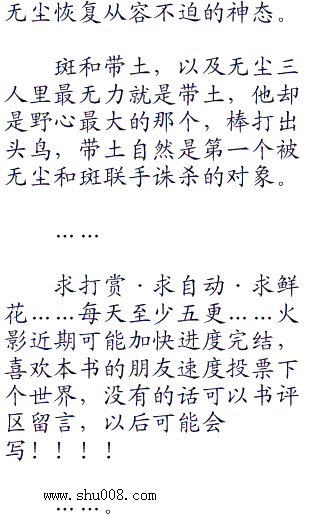 无尘恢复从容不迫的神态。
斑和带土，以及无尘三
人里最无力就是带土，他却
是野心最大的那个，棒打出
头鸟，带土自然是第一个被
无尘和斑联手诛杀的对象。
……
求打赏·求自动·求鲜
花……每天至少五更……火
影近期可能加快进度完结，
喜欢本书的朋友速度投票下
个世界，没有的话可以书评
区留言，以后可能会
写！！！！
www.shu008.com
……。